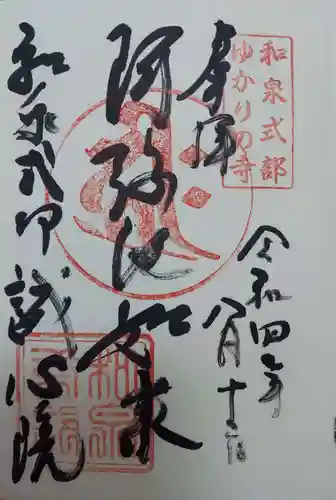 和泉式部
ゆかりの寺
奉拝
令和四年
八月十二日
阿弥陀如来
和泉式部
誠心院